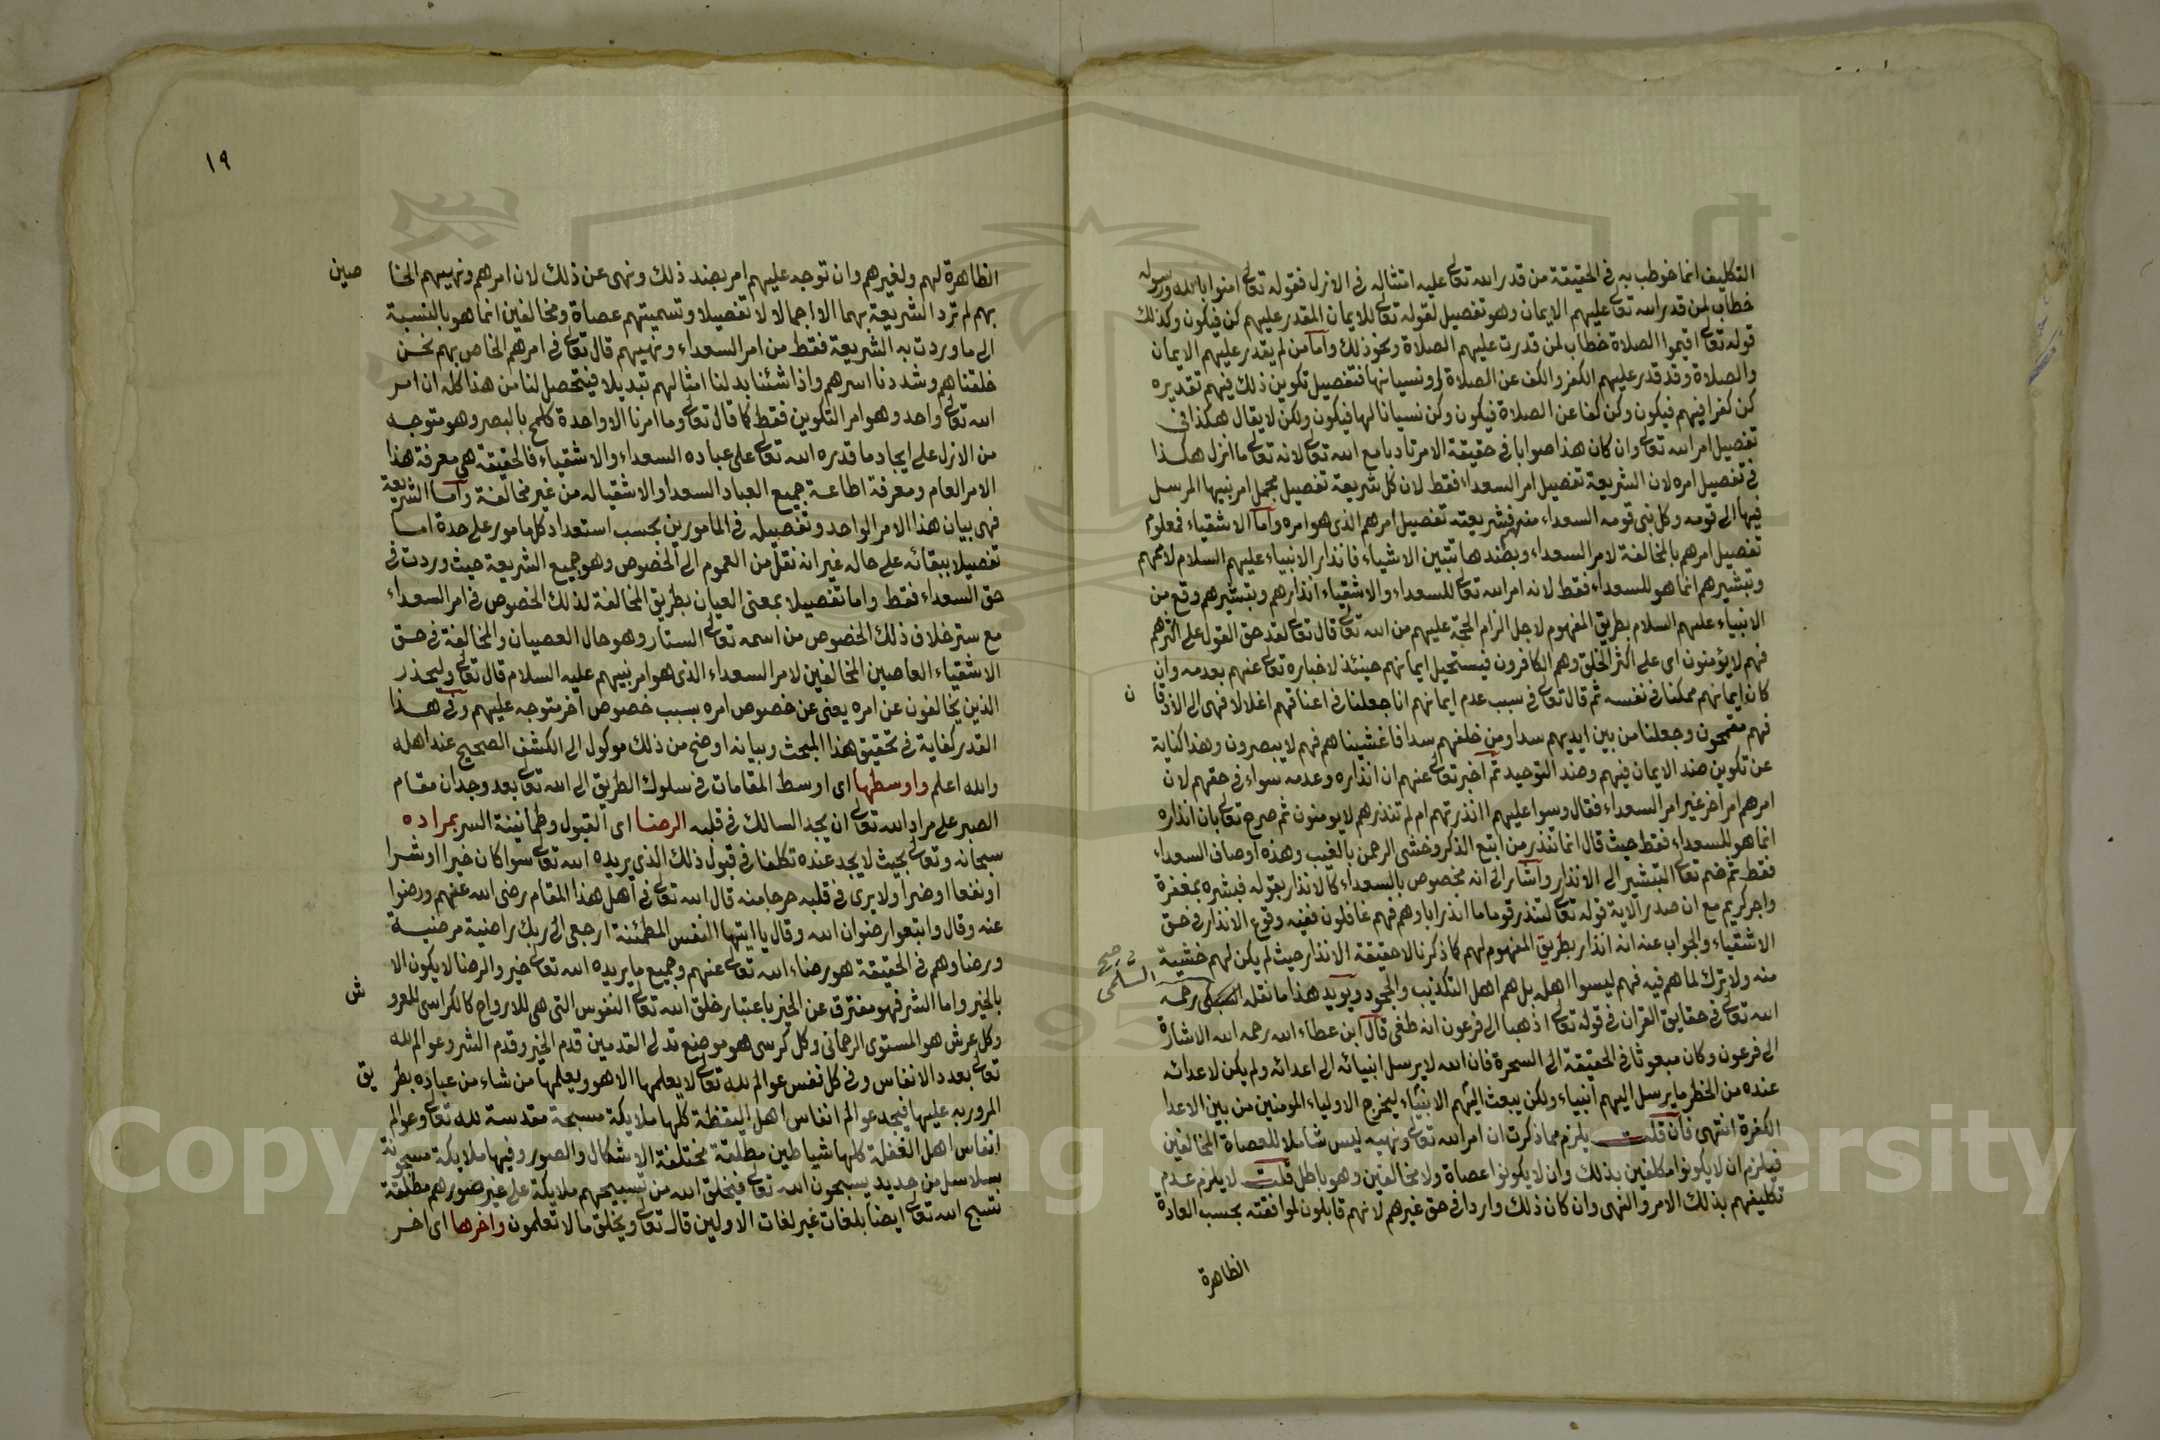 التكليف انما خوطب به في الحقيقة من قدر الله تعالى عليه امتثاله في الازل فقوله تعالى امنوا بالله ورسوله
خطاب لمن قدر الله تعالى عليهم الايمان وهو تفصيل لقوله تعالى للايمان المقدر عليهم كن فيكون وكذلك
قوله تعالى اقيموا الصلاة خطاب لمن قدرت عليهم الصلاة ونحو ذلك وأما من لم يقدر عليهم الايمان
والصلاة وقد قدر عليهم الكفر والكف عن الصلاة او نسيانها فتفصيل تكوين ذلك فيهم تقديره
كن كفرا فيهم فيكون وكن كفا عن الصلاة فيكون وكن نسيانا لها فيكون ولكن لا يقال هكذا في
تفصيل امر الله تعالى وان كان هذا صوابا في حقيقة الامر تادبا مع الله تعالى لانه تعالى ما انزل هكذا
في تفصيل امره لان الشريعة تفصيل امر السعداء فقط لان كل شريعة تفصيل مجمل امر نبيها المرسل
فيها الى قومه وكل نبي قومه السعداء منهم فشريعته تفصيل امرهم الذي هو امره وأما الاشقياء فمعلوم
تفصيل امرهم بالمخالفة لامر السعداء وبضدها تتبين الاشياء فانذار الانبياء عليهم السلام لاممهم
وتبشيرهم انما هو للسعداء فقط لانه امر الله تعالى للسعداء والاشقياء انذارهم وتبشيرهم وقع من
الانبياء عليهم السلام بطريق المفهوم لاجل الزام الحجة عليهم من الله تعالى قال تعالى لقد حق القول على اكثرهم
فهم لا يؤمنون اى على اكثر الخلق وهم الكافرون فيستحيل ايمانهم حينئذ لاخباره تعالى عنهم بعدمه وان
كان ايمانهم ممكنا في نفسه ثم قال تعالى في سبب عدم ايمانهم انا جعلنا في اعناقهم اغلالا فهي الى الاذقا ن
فهم مقمحون وجعلنا من بين ايديهم سدا ومن خلفهم سدا فاغشيناهم فهم لا يبصرون وهذا كناية
عن تكوين ضد الايمان فيهم وضد التوحيد ثم اخبر تعالى عنهم ان انذاره وعدمه سواء في حقهم لان
امرهم امر اخر غير امر السعداء فقال وسوا عليهم اانذرتهم ام لم تنذرهم لا يومنون ثم صرح تعالى بان انذاره
انما هو للسعداء فقط حيث قال انما تنذر من اتبع الذكر وخشي الرحمن بالغيب وهذه اوصاف السعداء
فقط ثم ضم تعالى التبشير الى الانذار وأشار الى انه مخصوص بالسعداء كالانذار بقوله فبشره بمغفرة
واجر كريم مع ان صدر الاية قوله تعالى لتنذر قوما ما انذر اباوهم فهم غافلون ففيه وقوع الانذار في حق
الاشقياء والجواب عنه انه انذار بطريق المفهوم لهم كما ذكرنا لا حقيقة الانذار حيث لم يكن لهم خشية
منه ولا ترك لما هم فيه فهم ليسوا اهله بل هم اهل التكذيب والجحود ويويد هذا ما نقله السلمي رحمه
الله تعالى في حقايق القران في قوله تعالى اذهبا الى فرعون انه طغى قال ابن عطاء الله رحمه الله الاشارة
الى فرعون وكان مبعوثا في الحقيقة الى السحرة فان الله لا يرسل انبيائه الى اعدائه ولم يكن لاعدائه
عنده من الخطر ما يرسل اليهم انبياء ولكن يبعث اليهم الانبياء ليخرج الاولياء المومنين من بين الاعدا
الكفرة انتهى فان قلت يلزم مما ذكرت ان امر الله تعالى ونهيه ليس شاملا للعصاة المخالفين
فيلزم ان لا يكونوا مكلفين بذلك وان لا يكونوا عصاة ولا مخالفين وهو باطل قلت لا يلزم عدم
تكليفهم بذلك الامر والنهى وان كان ذلك واردا في حق غيرهم لانهم قابلون لموافقته بحسب العادة
الظاهرة
١٩
الظاهرة لهم ولغيرهم وان توجه عليهم امر بضد ذلك ونهى عن ذلك لان امرهم ونهيهم الخا صين
بهم لم ترد الشريعة بهما الا اجمالا لا تفصيلا وتسميتهم عصاة ومخالفين انما هو بالنسبة
الى ما وردت به الشريعة فقط من امر السعداء ونهيهم قال تعالى في امرهم الخاص بهم نحن
خلقناهم وشددنا اسرهم واذا شئنا بدلنا امثالهم تبديلا فيتحصل لنا من هذا كله ان امر
الله تعالى واحد وهو امر التكوين فقط كما قال تعالى وما امرنا الا واحدة كلمح بالبصر وهو متوجه
من الازل على ايجاد ما قدره الله تعالى على عباده السعداء والاشقياء فالحقيقة هي معرفة هذا
الامر العام ومعرفة اطاعة جميع العباد السعدا والاشقيا له من غير مخالفة وأما الشريعة
فهى بيان هذا الامر الواحد وتفصيله في المامورين بحسب استعداد كل مامور على حدة اما
تفصيلا ببقائه على حاله غير انه نقل من العموم الى الخصوص وهو جميع الشريعة حيث وردت في
حق السعداء فقط واما تفصيلا بمعنى العيان بطريق المخالفة لذلك الخصوص في امر السعداء
مع ستر خلاف ذلك الخصوص من اسمه تعالى الستار وهو حال العصيان والمخالفة في حق
الاشقياء العاصين المخالفين لامر السعداء الذي هو امر نبيهم عليه السلام قال تعالى وليحذر
الذين يخالفون عن امره يعنى عن خصوص امره بسبب خصوص اخر متوجه عليهم وفي هذا
القدر كفاية في تحقيق هذا المبحث وبيانه اوضح من ذلك موكول الى الكشف الصحيح عند اهله
والله اعلم واوسطها اى اوسط المقامات في سلوك الطريق الى الله تعالى بعد وجدان مقام
الصبر على مراد الله تعالى ان يجد السالك في قلبه الرضا اى القبول وطمانينة السر بمراده
سبحانه وتعالى بحيث لا يجد عنده تكلفا في قبول ذلك الذي يريده الله تعالى سوا كان خيرا او شرا
او نفعا او ضرا ولا يرى في قلبه حرجا منه قال الله تعالى في اهل هذا المقام رضى الله عنهم ورضوا
عنه وقال واتبعوا رضوان الله وقال يا ايتها النفس المطمئنة ارجعى الى ربك راضية مرضية
ورضاوهم في الحقيقة هو رضاء الله تعالى عنهم وجميع ما يريده الله تعالى خير والرضا لا يكون الا
بالخير واما الشر فهو مفترق عن الخير باعتبار خلق الله تعالى النفوس التى هى للارواح كالكراسى للعرو ش
وكل عرش هو المستوى الرحماني وكل كرسى هو موضع تدلى القدمين قدم الخير وقدم الشر وعوالم لله
تعالى بعدد الانفاس وفي كل نفس عوالم لله تعالى لا يعلمها الا هو ويعلمها من شاء من عباده بطر يق
المرور به عليها فيجد عوالم انفاس اهل اليقظة كلها ملايكة مسبحة مقدسة لله تعالى وعوالم
انفاس اهل الغفلة كلها شياطين مطلقة مختلفة الاشكال والصور وفيها ملايكة مسجونة
بسلاسل من حديد يسبحون الله تعالى فيخلق الله من تسبيحهم ملايكة على غير صورهم مطلقة
تسبح الله تعالى ايضا بلغات غير لغات الاولين قال تعالى ويخلق ما لا تعلمون واخرها اى اخر